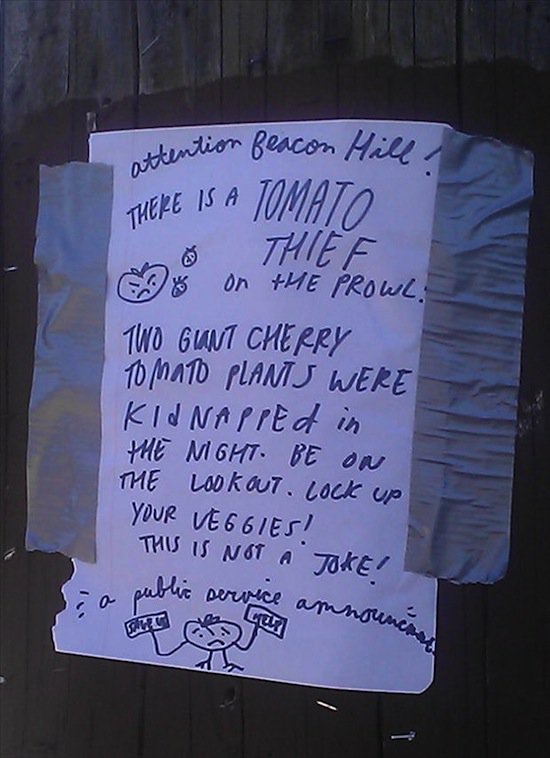 attention Beacon Hill!
THERE IS A TOMATO
THIEF
on tHE PROWL.
TWO GIANT CHERRY
TOMATO PLANTS WERE
KIdNAPPEd in
tHE NIGHT. BE ON
THE LOOKOUT. LOCK UP
YOUR VEGGIES!
THIS IS NOT A JOKE!
a public service announcement
SAVE US HELP